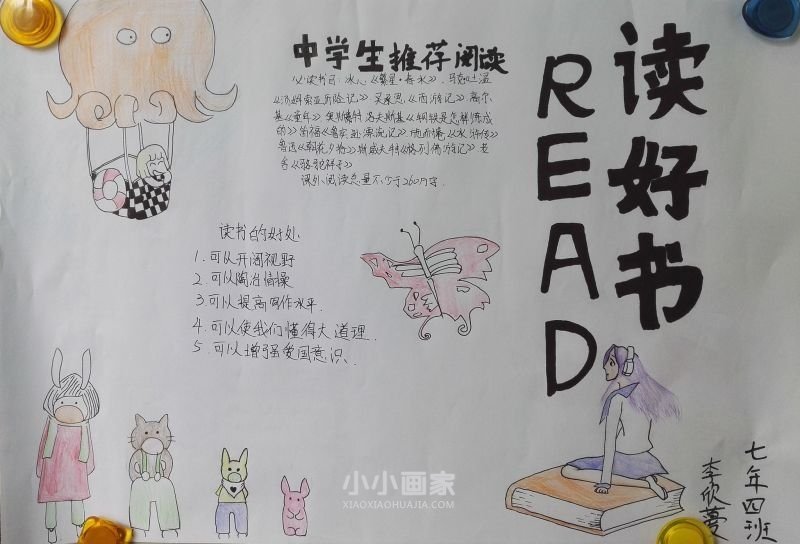 中学生推荐阅读
必读书目：冰心《繁星·春水》、马克吐温
《汤姆索亚历险记》吴承恩《西游记》高尔
基《童年》奥斯特洛夫斯基《钢铁是怎样炼成
的》笛福《鲁宾逊漂流记》施耐庵《水浒传》
鲁迅《朝花夕拾》斯威夫特《格列佛游记》老
舍《骆驼祥子》
课外阅读总量不少于260万字.
读书的好处
1.可以开阔视野
2.可以陶冶情操
3.可以提高写作水平.
4.可以使我们懂得大道理.
5.可以增强爱国意识、
读好书
READ
七年四班
李欣蔓
小小画家
XIAOXIAOHUAJIA.COM